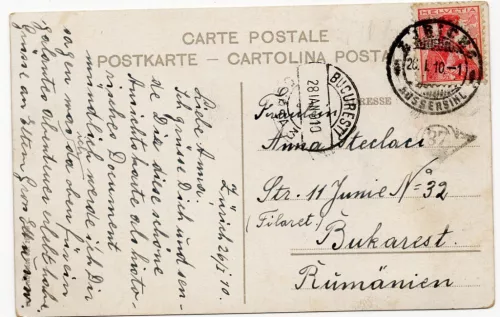 CARTE POSTALE
POSTKARTE - CARTOLINA POSTA
HELVETIA
ZÜRICH
26.I.10.-1
AUSSERSIHL
BUCURESTI
28 IAN 910
37
ADRESSE
Zürich 26/I 10.
Liebe Anna.
Ich grüsse Dich und sen-
de Dir diese schöne
Ansichtskarte als histo-
risches Document
mündlich werde ich Dir
sagen was da oben für ein
galantes Abenteuer erlebt habe.
Grüsse an Eltern
Fräulein
Anna Steclaci
Str. 11 Junie No 32
(Filaret)
Bukarest.
Rumänien